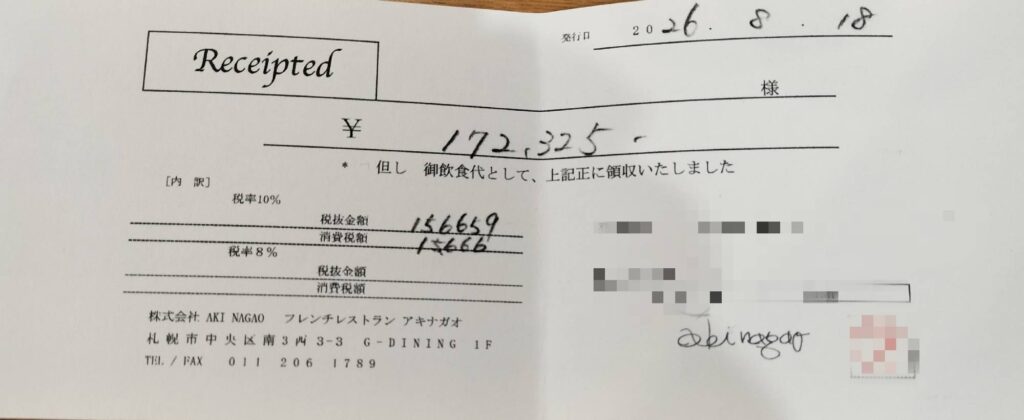 Receipted
発行日 2026.8.18
様
¥ 172,325-
* 但し 御飲食代として、上記正に領収いたしました
[内 訳]
税率10%
税抜金額 156659
消費税額 15666
税率8%
税抜金額
消費税額
株式会社 AKI NAGAO フレンチレストラン アキナガオ
札幌市中央区南3西3-3 G-DINING 1F
TEL / FAX 011 206 1789
aki nagao